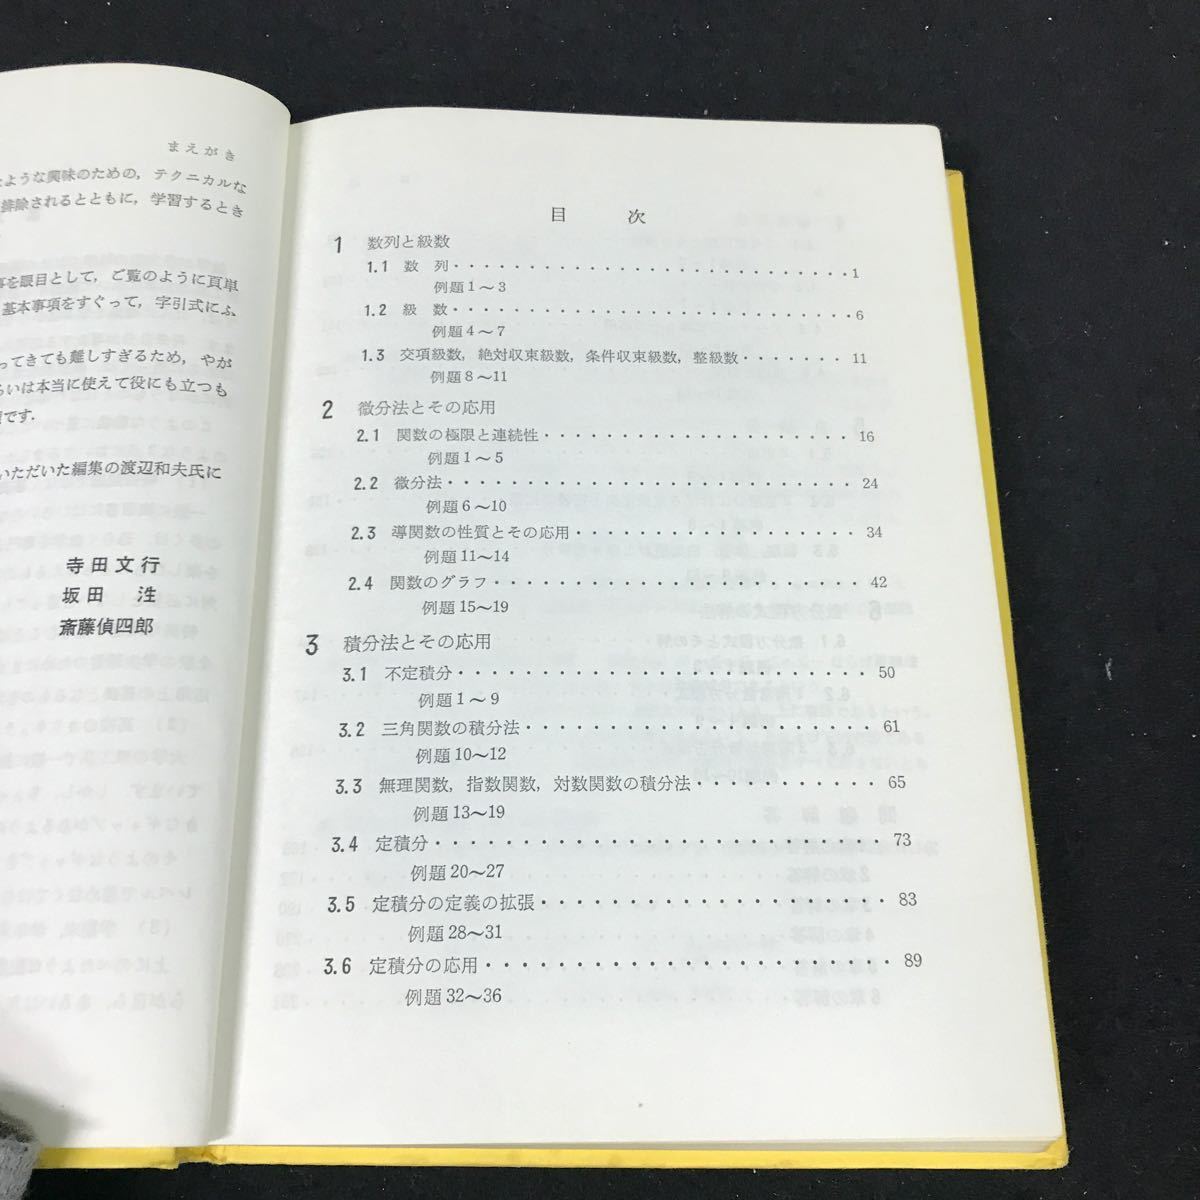 まえがき
ような興味のための，テクニカルな
排除されるとともに，学習するとき
を眼目として，ご覧のように頁単
基本事項をすぐって，字引式にふ
ってきても難しすぎるため，やが
らいは本当に使えて役にも立つも
です．
いただいた編集の渡辺和夫氏に
寺田文行
坂田　泩
斎藤偵四郎
目　次
1　数列と級数
1.1　数　列・・・・・・・・・・・・・・・・・・・・・・・・・・・1
例題1～3
1.2　級　数・・・・・・・・・・・・・・・・・・・・・・・・・・・6
例題4～7
1.3　交項級数，絶対収束級数，条件収束級数，整級数・・・・・・・11
例題8～11
2　微分法とその応用
2.1　関数の極限と連続性・・・・・・・・・・・・・・・・・・・・16
例題1～5
2.2　微分法・・・・・・・・・・・・・・・・・・・・・・・・・・24
例題6～10
2.3　導関数の性質とその応用・・・・・・・・・・・・・・・・・・34
例題11～14
2.4　関数のグラフ・・・・・・・・・・・・・・・・・・・・・・・42
例題15～19
3　積分法とその応用
3.1　不定積分・・・・・・・・・・・・・・・・・・・・・・・・・50
例題1～9
3.2　三角関数の積分法・・・・・・・・・・・・・・・・・・・・・61
例題10～12
3.3　無理関数，指数関数，対数関数の積分法・・・・・・・・・・・65
例題13～19
3.4　定積分・・・・・・・・・・・・・・・・・・・・・・・・・・73
例題20～27
3.5　定積分の定義の拡張・・・・・・・・・・・・・・・・・・・・83
例題28～31
3.6　定積分の応用・・・・・・・・・・・・・・・・・・・・・・・89
例題32～36